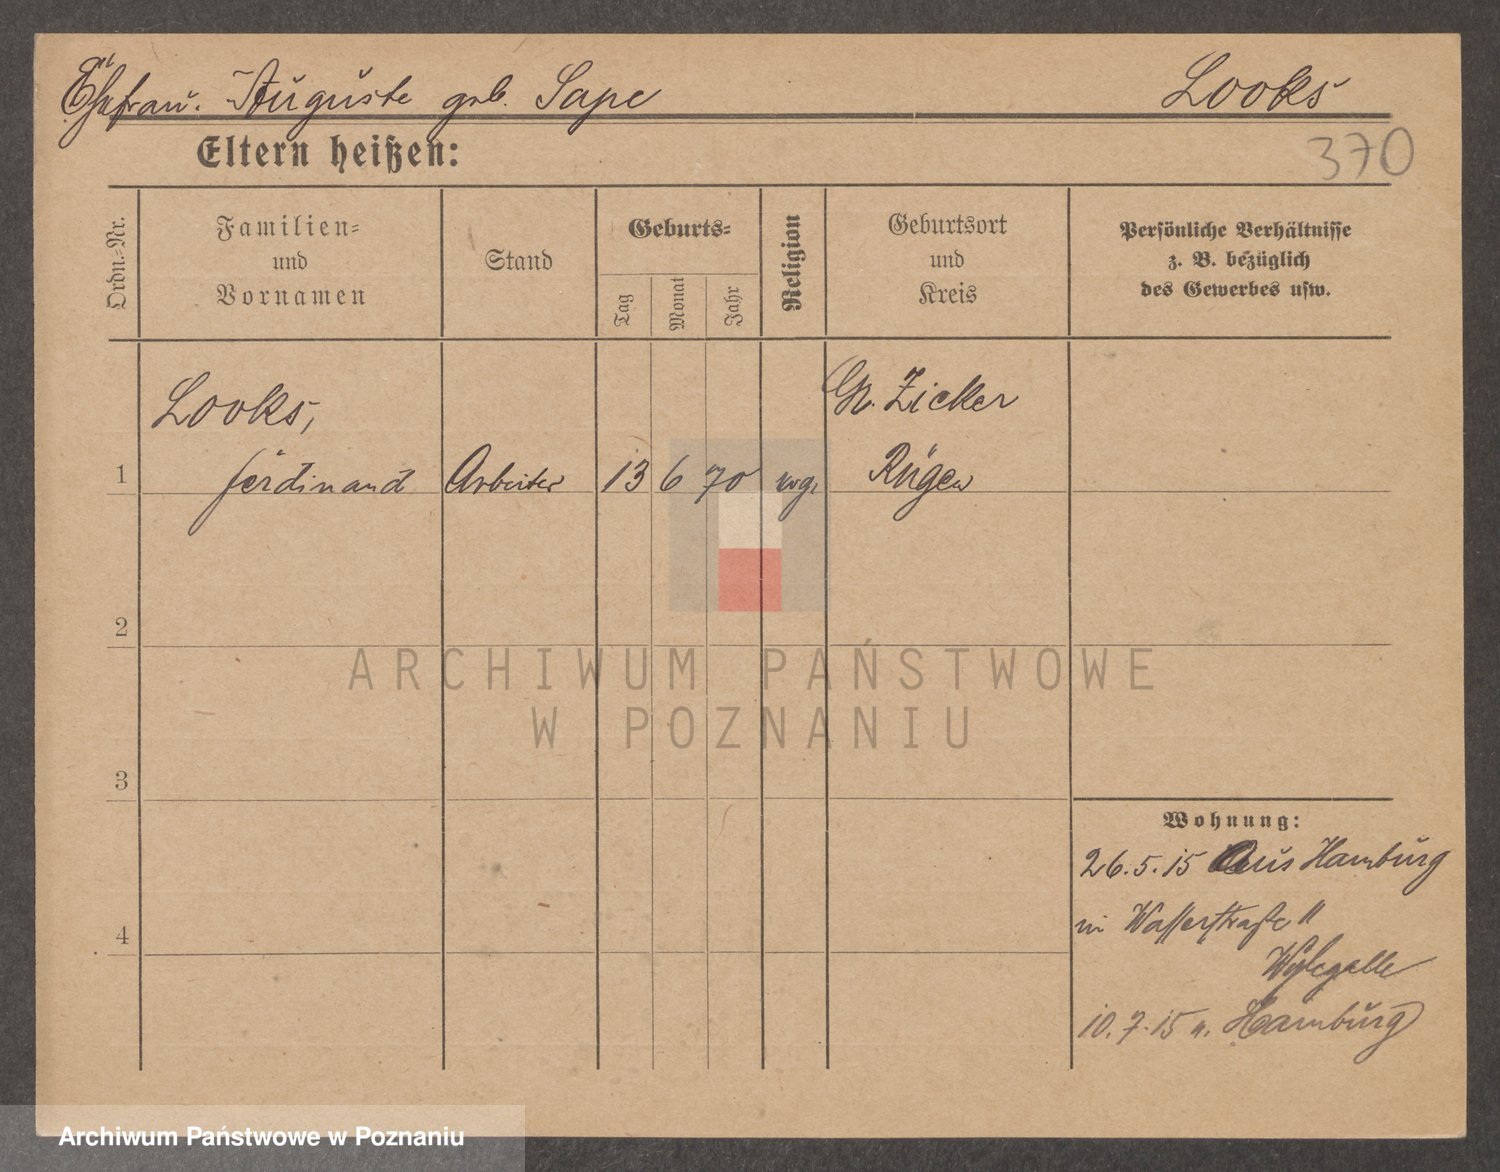 Ehefrau. Auguste geb. Sape
Looks
370
Eltern heißen:
Ordn.-Nr.
Familien-
und
Vornamen
Stand
Geburts-
Tag
Monat
Jahr
Religion
Geburtsort
und
Kreis
Persönliche Verhältnisse
z. B. bezüglich
des Gewerbes usw.
1
Looks,
Ferdinand
Arbeiter
13
6
70
evgl
Gr. Zicker
Rügen
2
3
4
Wohnung:
26.5.15 Aus Hamburg
in Wasserstraße 11
10.7.15 n. Hamburg
ARCHIWUM PAŃSTWOWE
W POZNANIU
Archiwum Państwowe w Poznaniu